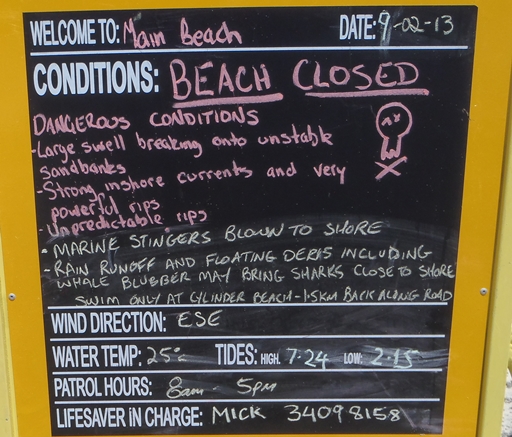 WELCOME TO: Main Beach DATE: 9-02-13
CONDITIONS: BEACH CLOSED
DANGEROUS CONDITIONS
-Large swell breaking onto unstable
sandbanks
-Strong inshore currents and very
powerful rips
-Unpredictable rips
- MARINE STINGERS BLOWN TO SHORE
- RAIN RUNOFF AND FLOATING DERIS INCLUDING
WHALE BLUBBER MAY BRING SHARKS CLOSE TO SHORE
SWIM ONLY AT CYLINDER BEACH-1.5KM BACK ALONG ROAD
WIND DIRECTION: ESE
WATER TEMP: 25°c TIDES: HIGH. 7.24 LOW: 2.15
PATROL HOURS: 8am - 5pm
LIFESAVER IN CHARGE: MICK 34098158